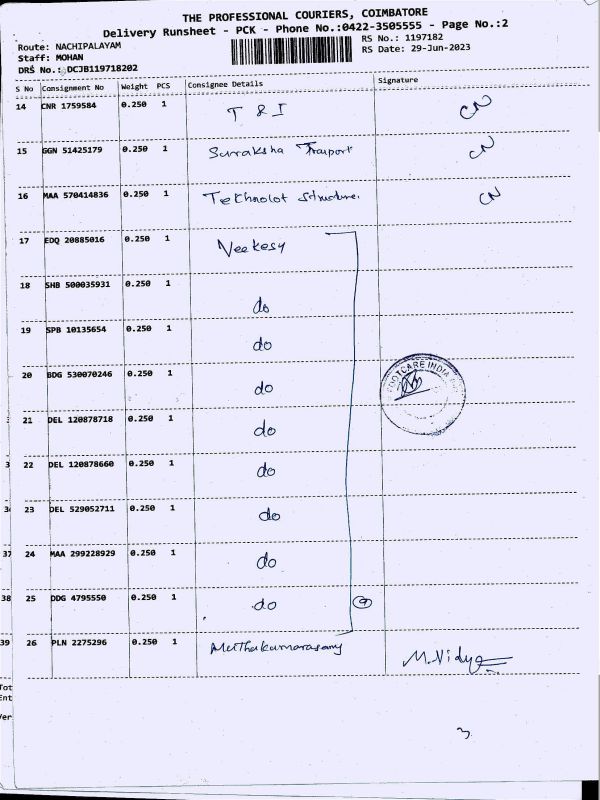 THE PROFESSIONAL COURIERS, COIMBATORE
Delivery Runsheet - PCK - Phone No.:0422-3505555 - Page No.:2
Route: NACHIPALAYAM
Staff: MOHAN
DRS No.: DCJB119718202
RS No.: 1197182
RS Date: 29-Jun-2023
S No Consignment No Weight PCS Consignee Details Signature
14 CNR 1759584 0.250 1 T & I CN
15 GGN 51425179 0.250 1 Surraksha Trasport CN
16 MAA 570414836 0.250 1 Teknolot Structure. CN
17 EDQ 20885016 0.250 1 Veekesy
18 SHB 500035931 0.250 1 do
19 SPB 10135654 0.250 1 do
20 BDG 530070246 0.250 1 do
FOOTCARE INDIA
21 DEL 120878718 0.250 1 do
22 DEL 120878660 0.250 1 do
23 DEL 529052711 0.250 1 do
24 MAA 299228929 0.250 1 do
25 DDG 4795550 0.250 1 do 9
26 PLN 2275296 0.250 1 Muthakumarasamy M.Vidya
3
37
38
39
Tot
Ent
Ver